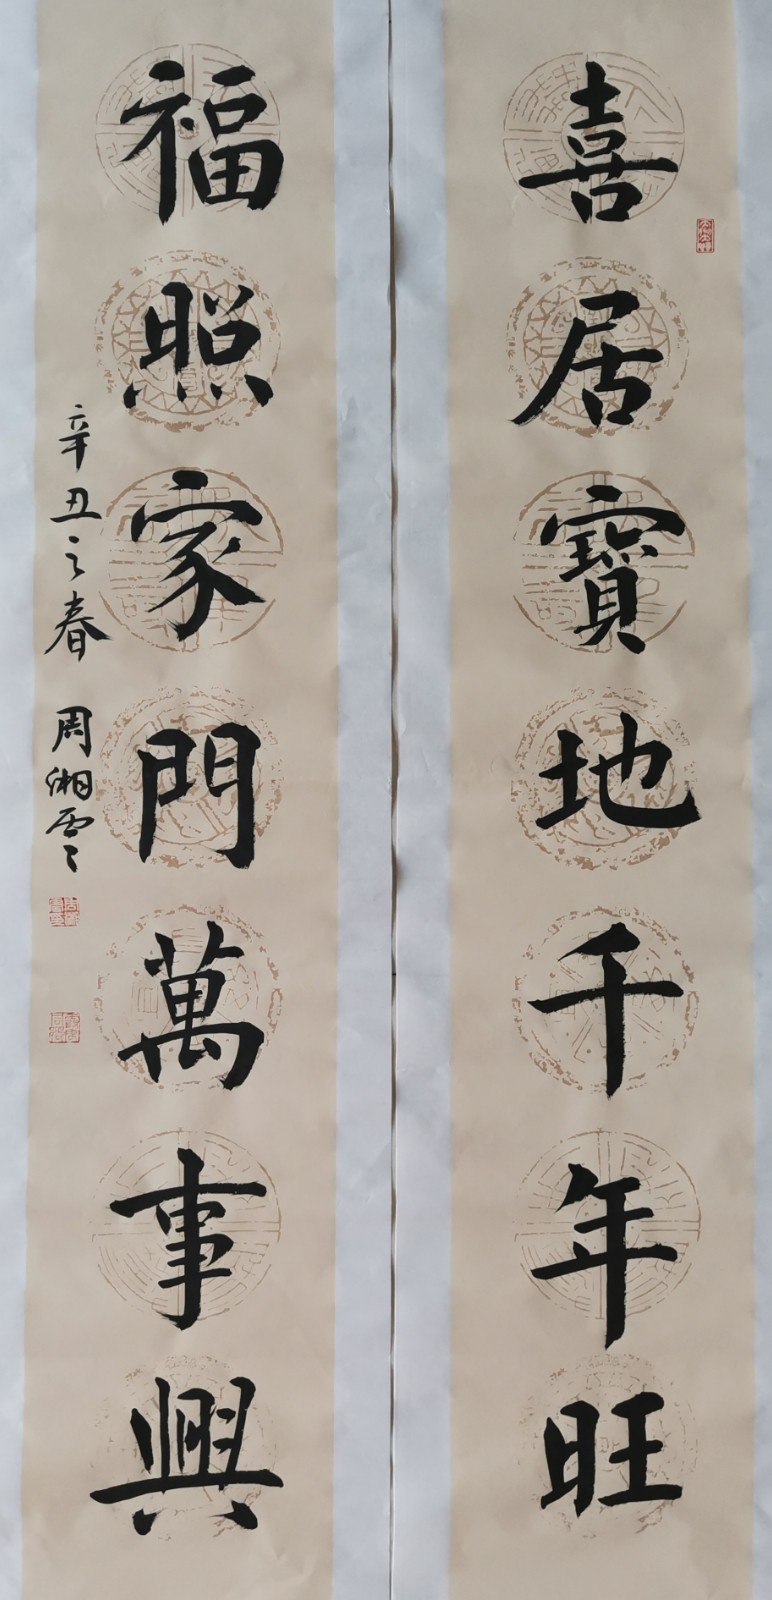 喜居寶地千年旺
福照家門萬事興
辛丑之春 周湘雲